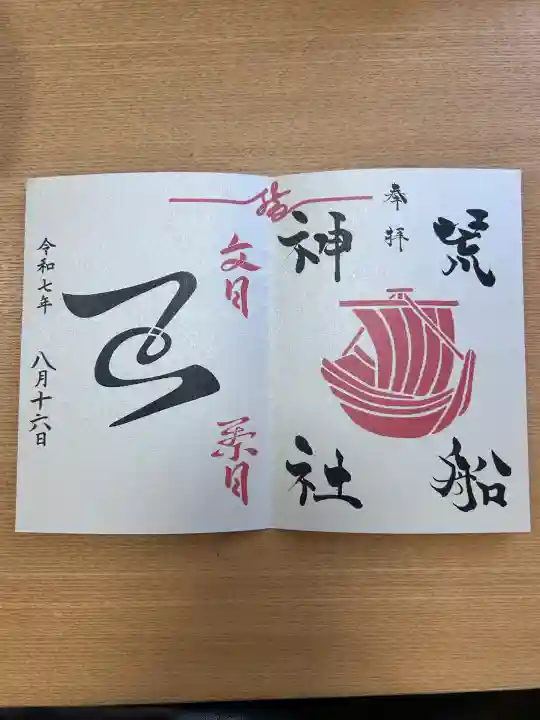 奉拝
荒船
神社
文月
葉月
令和七年
八月十六日